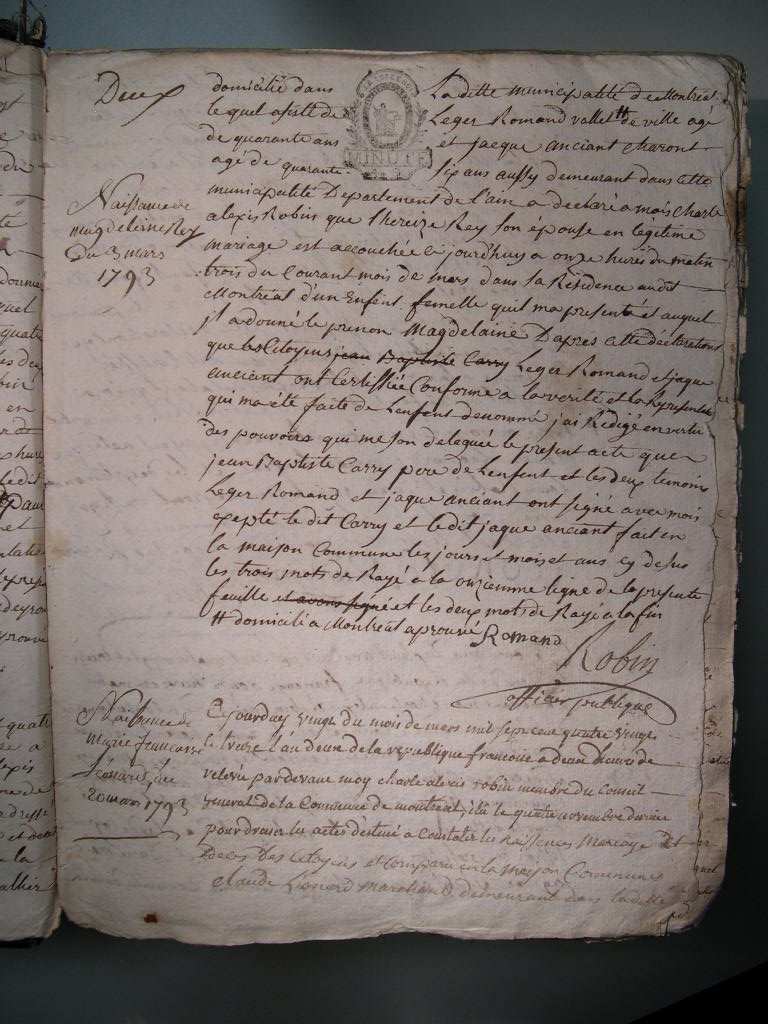 Deux
domicilié dans la ditte municipalité de Montréal
lequel asisté de Leger Romand vallet # de ville agé
de quarante ans et jacque anciant charont
MINUTE
agé de quarante six ans aussy demeurant dans cette
Naissance de
magdeleine Rey
du 3 mars
1793
municipalité Departement de l'ain a declaré a mois charle
alexis Robin que thereize Rey son épouse en legitime
mariage est accouchée ce jourdhuy a onze hures du matin
trois du Courant mois de mars dans sa Résidence audit
Montréal d'un Enfent femelle quil ma presenté et auquel
jl a donné le prenon Magdelaine D'apres cette déclarations
que les Citoyens jean Baptiste Carry Leger Romand et jaque
anciant ont Certiffiée Conforme a la verité et la Representa
qui ma été faite de Lenfent denommé j'ai Rédigé en vertu
des pouvoirs qui me son delegué le present acte que
jean Baptiste Carry pere de Lenfent et les deux temoins
Leger Romand et jaque anciant ont signé avec mois
exepté le dit Carry et ledit jaque anciant fait en
la maison Commune les jours et mois et ans cy desus
les trois mots de Rayé a la onziemme ligne de la presente
feuille et avons signé et les deux mots de Rayé a la fin
# domicilié a Montréal aprouvé Romand
Robin
officier publique
Naissance de
marie francoise
Leonard, du
20 mars 1793
Cejourduy vingt du mois de mars mil sept cent quatre vingt
et treize l'an deux de la republique francoise a deux heures de
relevée pardevant moy charle alexis robin membre du Conseil
general de la Commune de montreal élu le quatre novembre dernier
pour dresser les actes destiné a Constater les Naissances Mariage Et
Deces Des Citoyens est Comparu en la maison Commune
claude Leonard Marchand demeurant dans la ditte